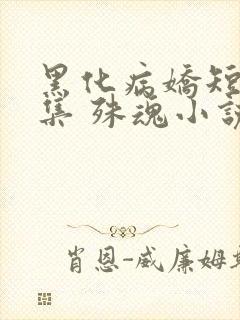 黑化病嬌短
集 殊魂小說
肖恩-威廉姆斯